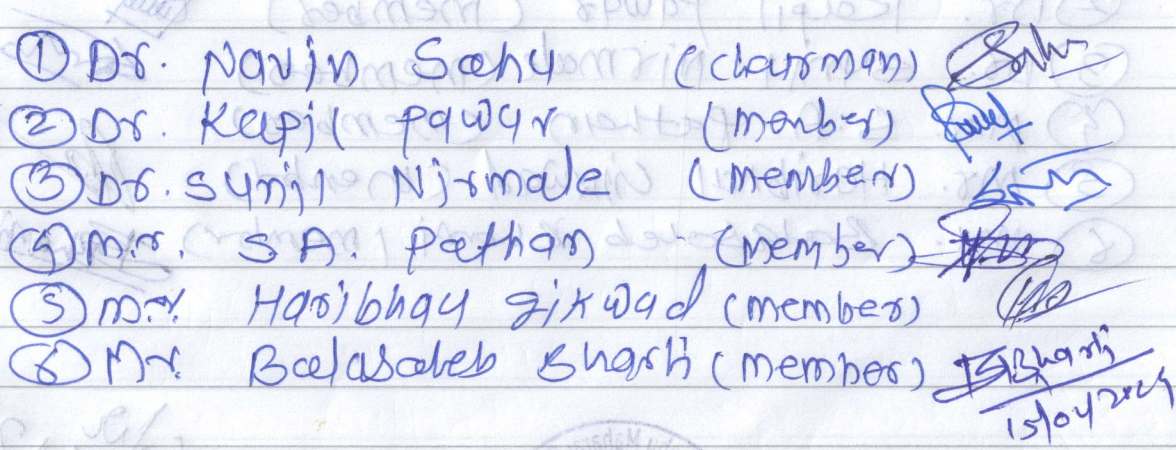 ① Dr. Navin Sahu (chairman)
② Dr. Kapil Pawar (Member)
③ Dr. Sunil Nirmale (Member)
④ Mr. S.A. Pathan (Member)
⑤ Mr. Haribhau Gikwad (Member)
⑥ Mr. Balasaheb Bharti (Member) Bharti